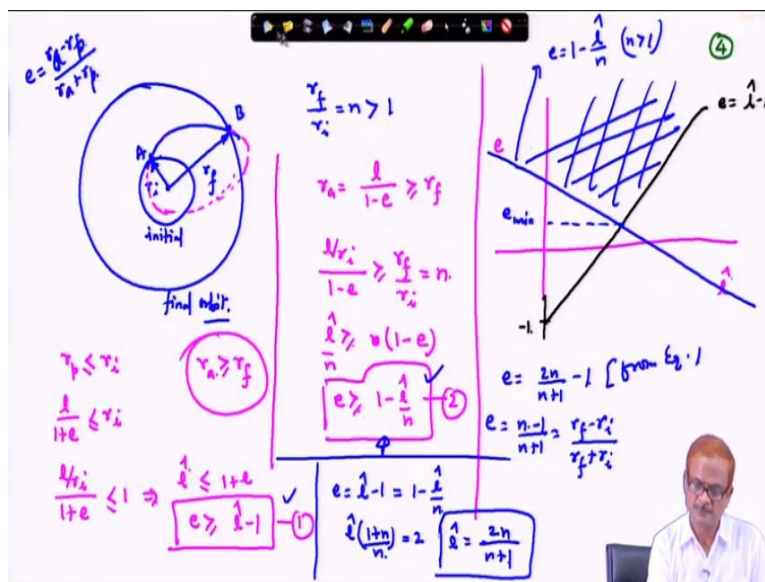 e = (r_a - r_p)/(r_a + r_p)
A
B
r_i
r_f
initial
final orbit.
r_p ≤ r_i
r_a ≥ r_f
l/(1+e) ≤ r_i
(l/r_i)/(1+e) ≤ 1 ⇒ l̂ ≤ 1+e
e ≥ l̂-1 — ① ✓
r_f/r_i = n > 1
r_a = l/(1-e) ≥ r_f
(l/r_i)/(1-e) ≥ r_f/r_i = n.
l̂/n ≥ (1-e)
e ≥ 1 - l̂/n — ② ✓
e = l̂-1 = 1 - l̂/n
l̂((1+n)/n) = 2
l̂ = 2n/(n+1)
e = 1 - l̂/n (n>1)
④
e = l̂-
e
e_min
l̂
-1.
e = 2n/(n+1) - 1 [from Eq.
e = (n-1)/(n+1) = (r_f - r_i)/(r_f + r_i)